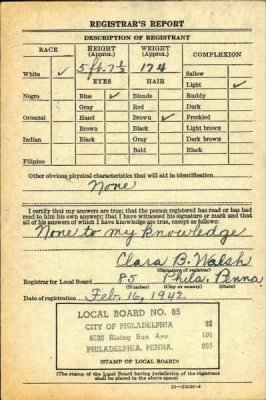 REGISTRAR'S REPORT
DESCRIPTION OF REGISTRANT
RACE HEIGHT (Approx.) WEIGHT (Approx.) COMPLEXION
5 ft. 7 1/2 174 Sallow
White ✓ EYES HAIR Light ✓
Negro Blue ✓ Blonde Ruddy
Gray Red Dark
Oriental Hazel Brown ✓ Freckled
Brown Black Light brown
Indian Black Gray Dark brown
Bald Black
Filipino
Other obvious physical characteristics that will aid in identification
None
I certify that my answers are true; that the person registered has read or has had
read to him his own answers; that I have witnessed his signature or mark and that
all of his answers of which I have knowledge are true, except as follows:
None to my knowledge
Clara B. Walsh
(Signature of registrar)
Registrar for Local Board 85 Phila. Penna.
(Number) (City or county) (State)
Date of registration Feb. 16, 1942
LOCAL BOARD NO. 85
CITY OF PHILADELPHIA 32
6520 Rising Sun Ave. 101
PHILADELPHIA, PENNA. 085
(STAMP OF LOCAL BOARD)
(The stamp of the Local Board having jurisdiction of the registrant
shall be placed in the above space.)